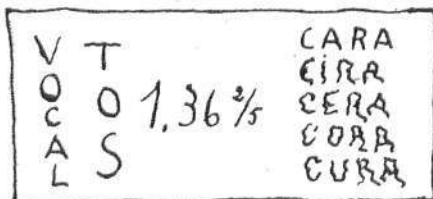 VOCAL
TOS
1.36 2/5
CARA
CIRA
CERA
CORA
CURA